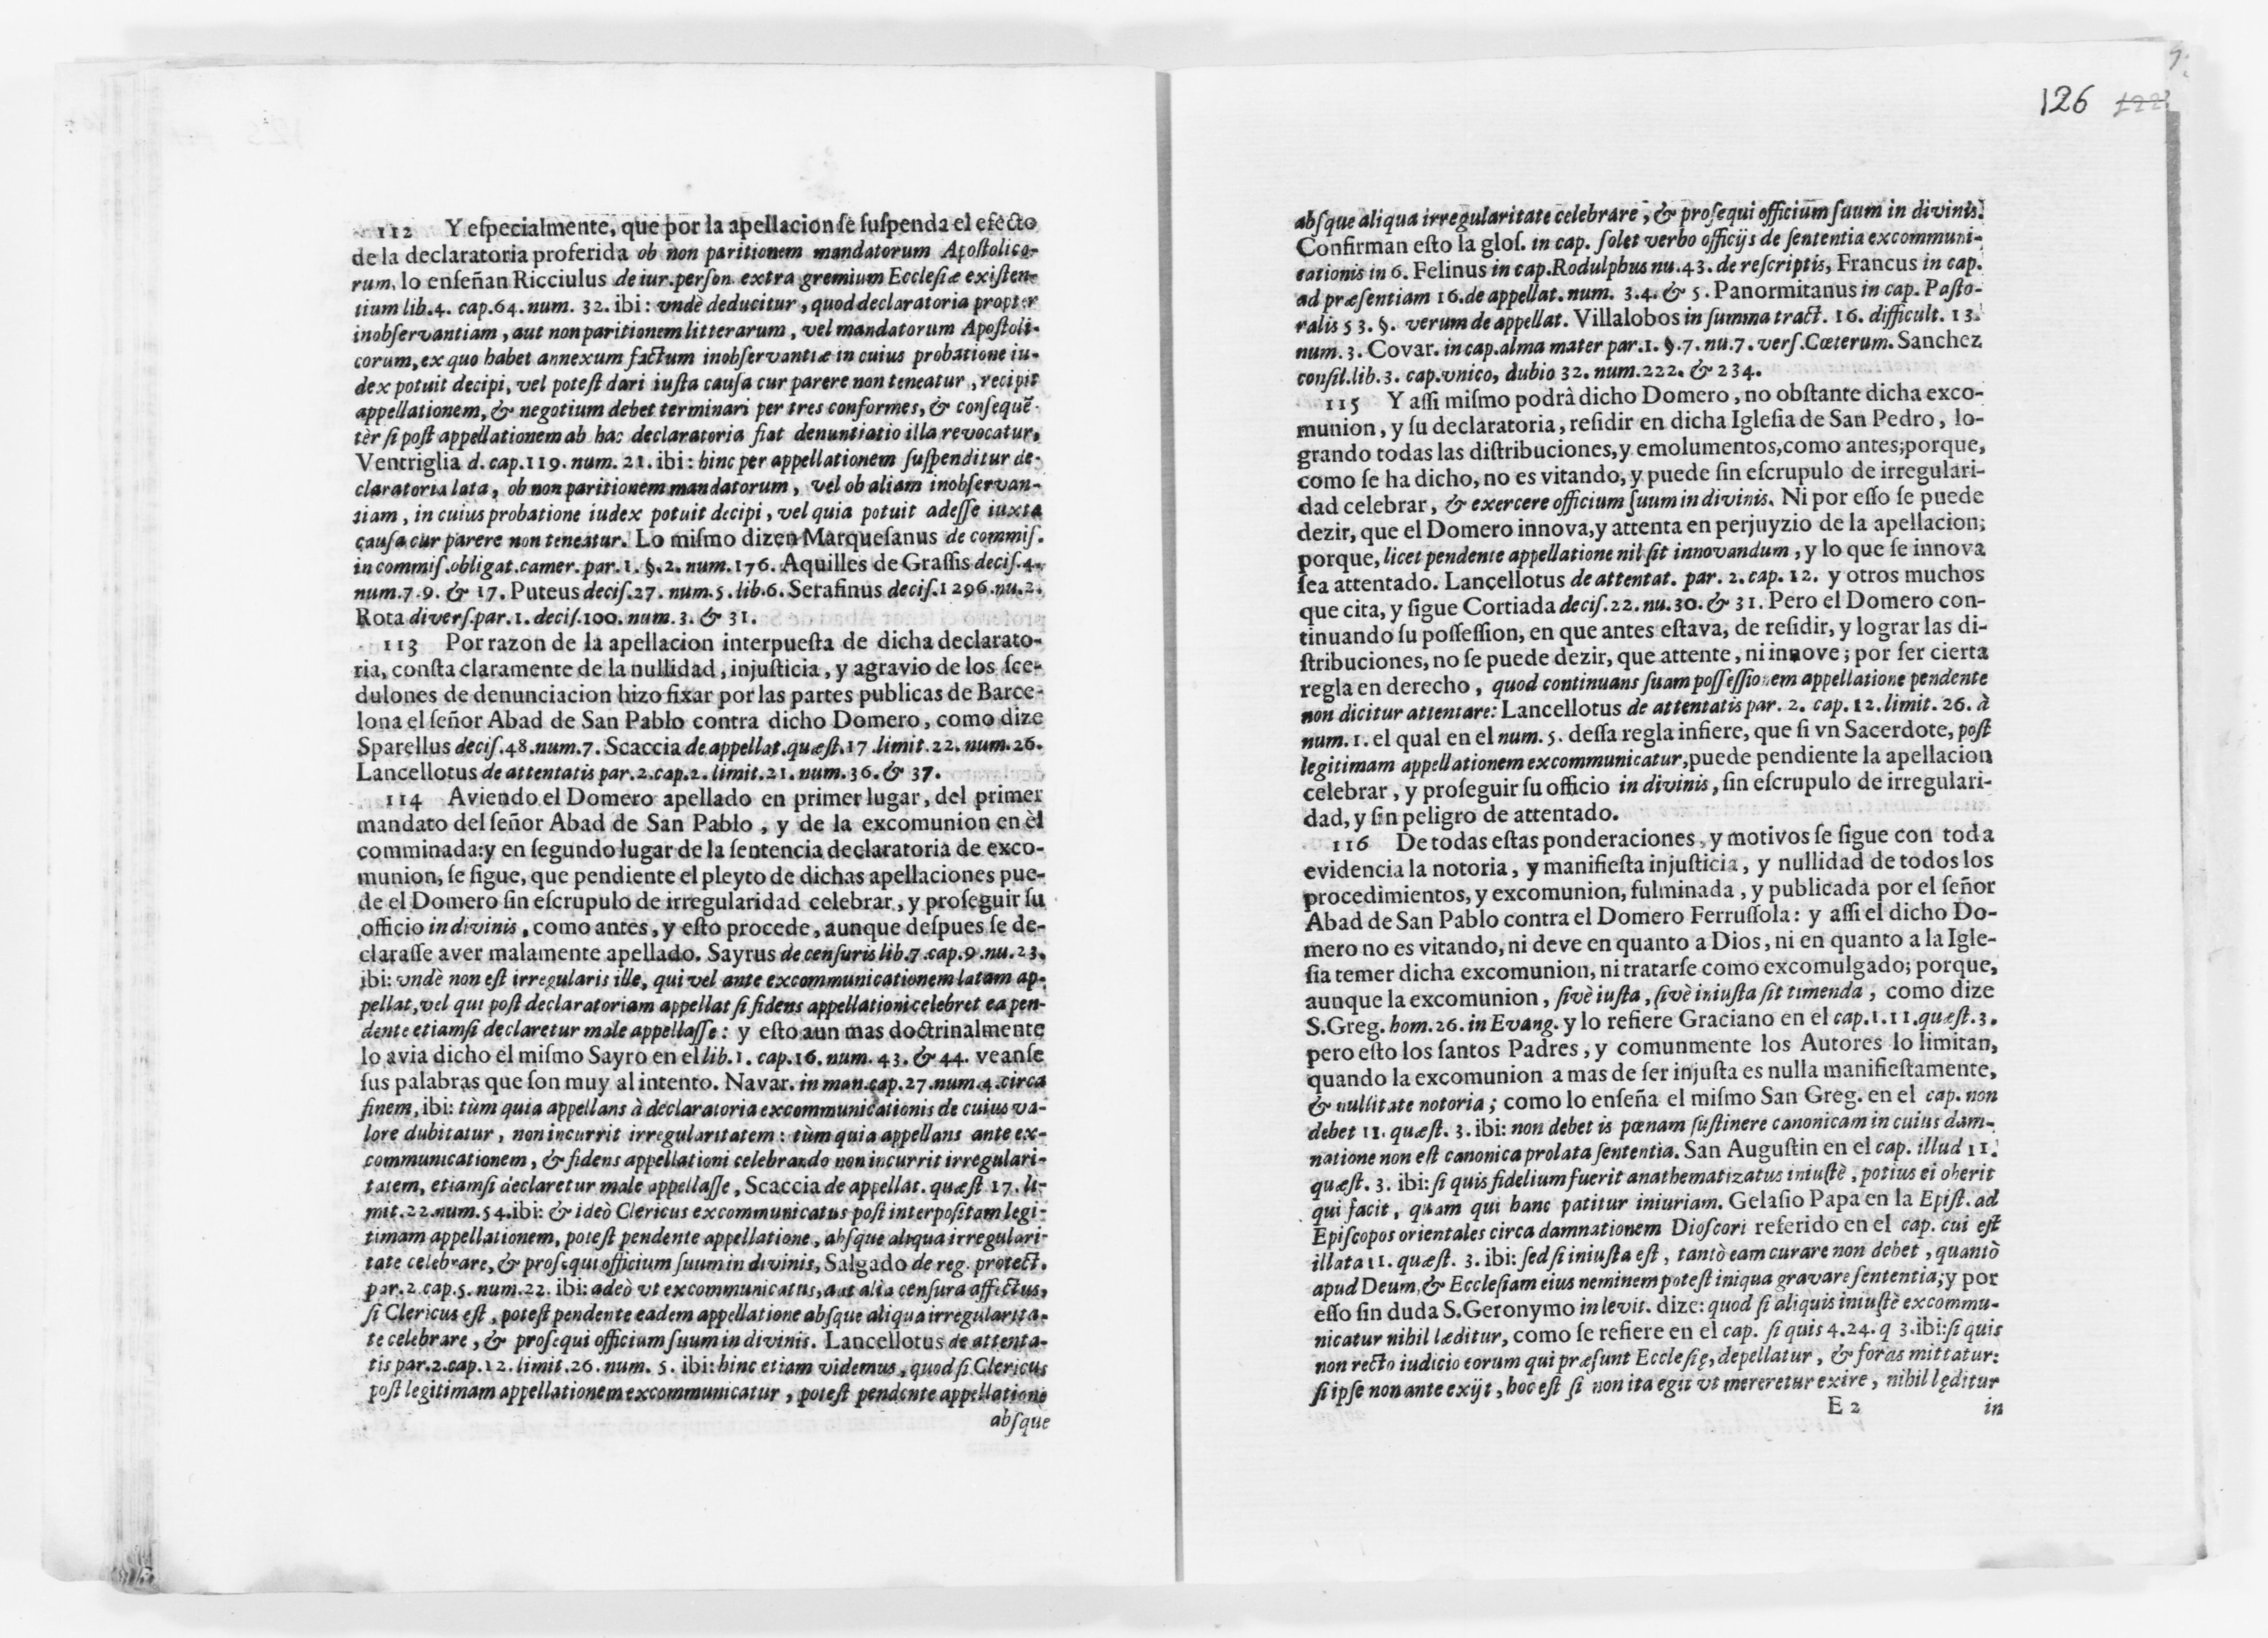 112 Y eſpecialmente, que por la apellacion ſe ſuſpenda el efecto
de la declaratoria proferida ob non paritionem mandatorum Apoſtolico-
rum, lo enſeñan Ricciulus de iur. perſon. extra gremium Eccleſiæ exiſten-
tium lib.4. cap.64. num. 32. ibi: vndè deducitur, quod declaratoria propter
inobſervantiam, aut non paritionem litterarum, vel mandatorum Apoſtoli-
corum, ex quo habet annexum factum inobſervantiæ in cuius probatione iu-
dex potuit decipi, vel poteſt dari iuſta cauſa cur parere non teneatur, recipit
appellationem, & negotium debet terminari per tres conformes, & conſequẽ-
tèr ſi poſt appellationem ab hac declaratoria fiat denuntiatio illa revocatur,
Ventriglia d. cap.119. num. 21. ibi: hinc per appellationem ſuſpenditur de-
claratoria lata, ob non paritionem mandatorum, vel ob aliam inobſervan-
tiam, in cuius probatione iudex potuit decipi, vel quia potuit adeſſe iuxta
cauſa cur parere non teneatur. Lo miſmo dizen Marqueſanus de commiſ.
in commiſ. obligat. camer. par. 1. §. 2. num. 176. Aquilles de Graſſis deciſ. 4.
num. 7. 9. & 17. Puteus deciſ. 27. num. 5. lib. 6. Serafinus deciſ. 1296. nu. 2.
Rota diverſ. par. 1. deciſ. 100. num. 3. & 31.
113 Por razon de la apellacion interpueſta de dicha declarato-
ria, conſta claramente de la nullidad, injuſticia, y agravio de los ſce-
dulones de denunciacion hizo fixar por las partes publicas de Barce-
lona el ſeñor Abad de San Pablo contra dicho Domero, como dize
Sparellus deciſ. 48. num. 7. Scaccia de appellat. quæſt. 17. limit. 22. num. 26.
Lancellotus de attentatis par. 2. cap. 2. limit. 21. num. 36. & 37.
114 Aviendo el Domero apellado en primer lugar, del primer
mandato del ſeñor Abad de San Pablo, y de la excomunion en èl
comminada: y en ſegundo lugar de la ſentencia declaratoria de exco-
munion, ſe ſigue, que pendiente el pleyto de dichas apellaciones pue-
de el Domero ſin eſcrupulo de irregularidad celebrar, y proſeguir ſu
officio in divinis, como antes, y eſto procede, aunque deſpues ſe de-
claraſſe aver malamente apellado. Sayrus de cenſuris lib. 7. cap. 9. nu. 23.
ibi: vndè non eſt irregularis ille, qui vel ante excommunicationem latam ap-
pellat, vel qui poſt declaratoriam appellat ſi fidens appellationi celebret ea pen-
dente etiamſi declaretur male appellaſſe: y eſto aun mas doctrinalmente
lo avia dicho el miſmo Sayro en el lib. 1. cap. 16. num. 43. & 44. veanſe
ſus palabras que ſon muy al intento. Navar. in man. cap. 27. num. 4. circa
finem, ibi: tùm quia appellans à declaratoria excommunicationis de cuius va-
lore dubitatur, non incurrit irregularitatem: tùm quia appellans ante ex-
communicationem, & fidens appellationi celebrando non incurrit irregulari-
tatem, etiamſi declaretur male appellaſſe, Scaccia de appellat. quæſt 17. li-
mit. 22. num. 54. ibi: & ideò Clericus excommunicatus poſt interpoſitam legi-
timam appellationem, poteſt pendente appellatione, abſque aliqua irregulari-
tate celebrare, & proſequi officium ſuum in divinis, Salgado de reg. protect.
par. 2. cap. 5. num. 22. ibi: adeò vt excommunicatus, aut alia cenſura affectus,
ſi Clericus eſt, poteſt pendente eadem appellatione abſque aliqua irregularita-
te celebrare, & proſequi officium ſuum in divinis. Lancellotus de attenta-
tis par. 2. cap. 12. limit. 26. num. 5. ibi: hinc etiam videmus, quod ſi Clericus
poſt legitimam appellationem excommunicatur, poteſt pendente appellatione
abſque
126 122
abſque aliqua irregularitate celebrare, & proſequi officium ſuum in divinis.
Confirman eſto la gloſ. in cap. ſolet verbo officijs de ſententia excommuni-
cationis in 6. Felinus in cap. Rodulphus nu. 43. de reſcriptis, Francus in cap.
ad præſentiam 16. de appellat. num. 3. 4. & 5. Panormitanus in cap. Paſto-
ralis 53. §. verum de appellat. Villalobos in ſumma tract. 16. difficult. 13.
num. 3. Covar. in cap. alma mater par. 1. §. 7. nu. 7. verſ. Cæterum. Sanchez
conſil. lib. 3. cap. vnico, dubio 32. num. 222. & 234.
115 Y aſſi miſmo podrâ dicho Domero, no obſtante dicha exco-
munion, y ſu declaratoria, reſidir en dicha Igleſia de San Pedro, lo-
grando todas las diſtribuciones, y emolumentos, como antes; porque,
como ſe ha dicho, no es vitando, y puede ſin eſcrupulo de irregulari-
dad celebrar, & exercere officium ſuum in divinis. Ni por eſſo ſe puede
dezir, que el Domero innova, y attenta en perjuyzio de la apellacion;
porque, licet pendente appellatione nil ſit innovandum, y lo que ſe innova
ſea attentado. Lancellotus de attentat. par. 2. cap. 12. y otros muchos
que cita, y ſigue Cortiada deciſ. 22. nu. 30. & 31. Pero el Domero con-
tinuando ſu poſſeſſion, en que antes eſtava, de reſidir, y lograr las di-
ſtribuciones, no ſe puede dezir, que attente, ni innove; por ſer cierta
regla en derecho, quod continuans ſuam poſſeſſionem appellatione pendente
non dicitur attentare: Lancellotus de attentatis par. 2. cap. 12. limit. 26. à
num. 1. el qual en el num. 5. deſſa regla infiere, que ſi vn Sacerdote, poſt
legitimam appellationem excommunicatur, puede pendiente la apellacion
celebrar, y proſeguir ſu officio in divinis, ſin eſcrupulo de irregulari-
dad, y ſin peligro de attentado.
116 De todas eſtas ponderaciones, y motivos ſe ſigue con toda
evidencia la notoria, y manifieſta injuſticia, y nullidad de todos los
procedimientos, y excomunion, fulminada, y publicada por el ſeñor
Abad de San Pablo contra el Domero Ferruſſola: y aſſi el dicho Do-
mero no es vitando, ni deve en quanto a Dios, ni en quanto a la Igle-
ſia temer dicha excomunion, ni tratarſe como excomulgado; porque,
aunque la excomunion, ſivè iuſta, ſivè iniuſta ſit timenda, como dize
S. Greg. hom. 26. in Evang. y lo refiere Graciano en el cap. 1. 11. quæſt. 3.
pero eſto los ſantos Padres, y comunmente los Autores lo limitan,
quando la excomunion a mas de ſer injuſta es nulla manifieſtamente,
& nullitate notoria; como lo enſeña el miſmo San Greg. en el cap. non
debet 11. quæſt. 3. ibi: non debet is pœnam ſuſtinere canonicam in cuius dam-
natione non eſt canonica prolata ſententia. San Auguſtin en el cap. illud 11.
quæſt. 3. ibi: ſi quis fidelium fuerit anathematizatus iniuſtè, potius ei oberit
qui facit, quam qui hanc patitur iniuriam. Gelaſio Papa en la Epiſt. ad
Epiſcopos orientales circa damnationem Dioſcori referido en el cap. cui eſt
illata 11. quæſt. 3. ibi: ſed ſi iniuſta eſt, tantò eam curare non debet, quantò
apud Deum, & Eccleſiam eius neminem poteſt iniqua gravare ſententia; y por
eſſo ſin duda S. Geronymo in levit. dize: quod ſi aliquis iniuſtè excommu-
nicatur nihil læditur, como ſe refiere en el cap. ſi quis 4. 24. q 3. ibi: ſi quis
non recto iudicio eorum qui præſunt Eccleſię, depellatur, & foras mittatur:
ſi ipſe non ante exijt, hoc eſt ſi non ita egit vt mereretur exire, nihil lęditur
E 2 in